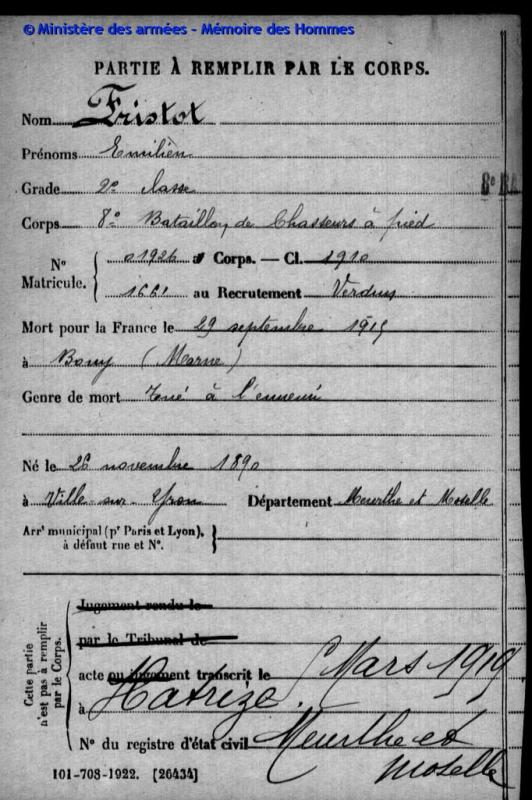 © Ministère des armées - Mémoire des Hommes
PARTIE À REMPLIR PAR LE CORPS.
Nom Fristot
Prénoms Emilien
Grade 2e classe
8e BA
Corps 8e Bataillon de Chasseurs à pied
N° Matricule. { 01926 au Corps. — Cl. 1910
1661 au Recrutement Verdun
Mort pour la France le 29 septembre 1915
à Bouy (Marne)
Genre de mort Tué à l'ennemi
Né le 26 novembre 1890
à Ville-sur-Yron Département Meurthe et Moselle
Arrt municipal (pr Paris et Lyon), à défaut rue et N°. }
Cette partie n'est pas à remplir par le Corps.
Jugement rendu le
par le Tribunal de
acte ou jugement transcrit le Mars 1919
à Hatrize.
N° du registre d'état civil Meurthe et
Moselle
101-708-1922. [26434]